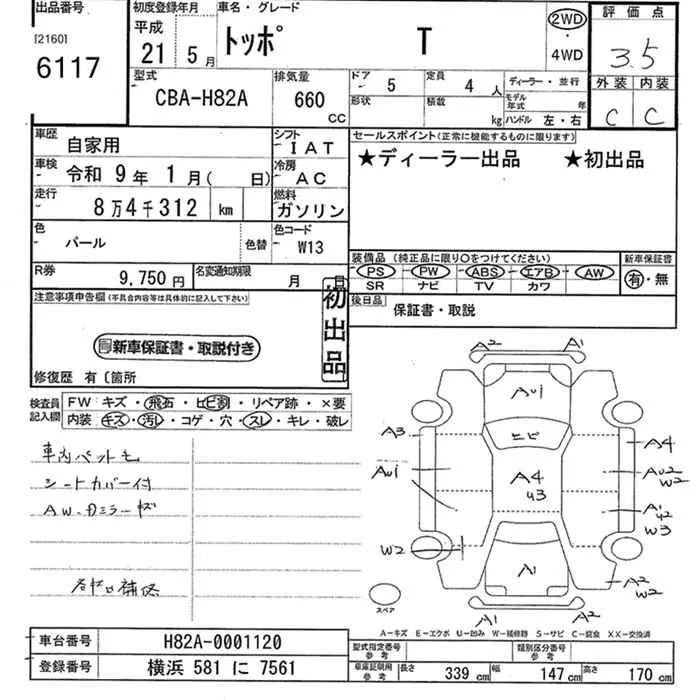 出品番号 初度登録年月 車名・グレード 2WD 評価点
[2160] 平成
6117 21年 5月 トッポ T 4WD 3.5
型式 排気量 ドア 5 定員 4人 ディーラー・並行 外装 内装
CBA-H82A 660cc 形状 積載 kg モデル年式 年 ハンドル 左・右 C C
車歴 自家用 シフト IAT セールスポイント(正常に機能するものに限ります)
車検 令和 9年 1月( 日) 冷房 AC ★ディーラー出品 ★初出品
走行 8万4千312 km 燃料 ガソリン
色 パール 色替 色コード W13
装備品(純正品に限り○をつけてください) 新車保証書
R券 9,750円 名変通知期限 月 日 PS・PW・ABS・エアB・AW 有・無
SR ナビ TV カワ
注意事項申告欄(不具合内容等は具体的に記入して下さい) 初出品 後日品 保証書・取説
新車保証書・取説付き
修復歴 有〔箇所
検査員記入欄 FW キズ・飛石・ヒビ割・リペア跡・×要
内装 キズ・汚レ・コゲ・穴・スレ・キレ・破レ
車内ペット毛
シートカバー付
AW・カミラーキズ
各キロ補修
A2 A1
AU1
ヒビ
A3 A4
AU1 A4 U3 AU2 W2
A1 U2 W3
W2
A1 A2 W2
スペア
A1 A2
A-キズ E-エクボ U-凹み W-補修跡 S-サビ C-腐食 XX-交換済
車台番号 H82A-0001120 型式指定番号 参考 類別区分番号 参考
登録番号 横浜 581 に 7561 車庫証明用 参考 長さ 339cm 幅 147cm 高さ 170cm